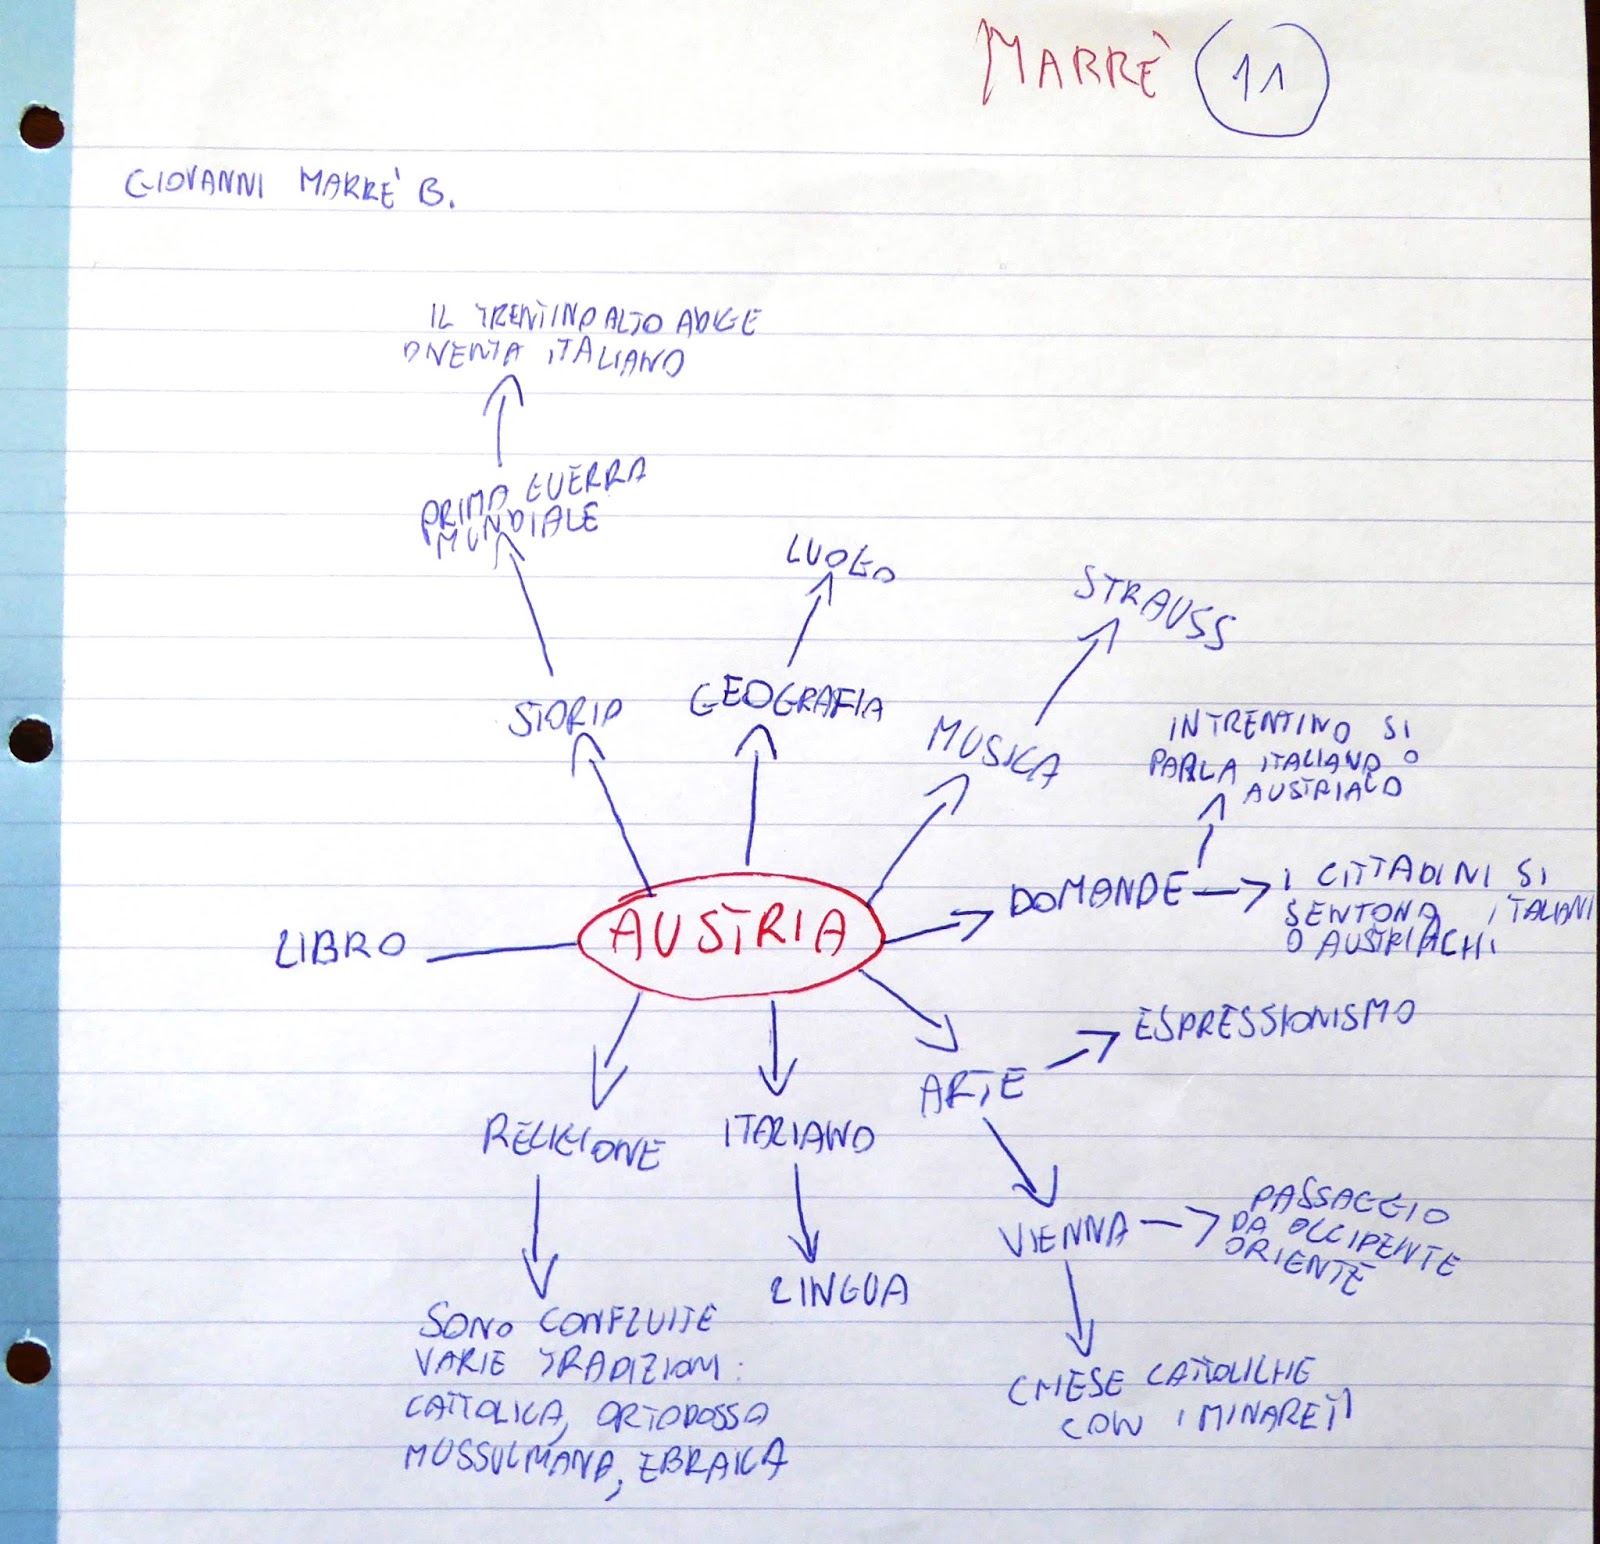 MARRÈ 11
GIOVANNI MARRE' B.
IL TRENTINO ALTO ADIGE
DIVENTA ITALIANO
PRIMA GUERRA
MUNDIALE
LUOGO
STRAUSS
STORIA
GEOGRAFIA
MUSICA
IN TRENTINO SI
PARLA ITALIANO O
AUSTRIACO
DOMANDE
I CITTADINI SI
SENTONO ITALIANI
O AUSTRIACHI
LIBRO
AUSTRIA
ESPRESSIONISMO
ARTE
RELIGIONE
ITALIANO
VIENNA
PASSAGGIO
DA OCCIPENTE
ORIENTE
LINGUA
SONO CONFLUITE
VARIE TRADIZIONI:
CATTOLICA, ORTODOSSA
MUSSULMANA, EBRAICA
CHIESE CATTOLICHE
CON I MINARETI